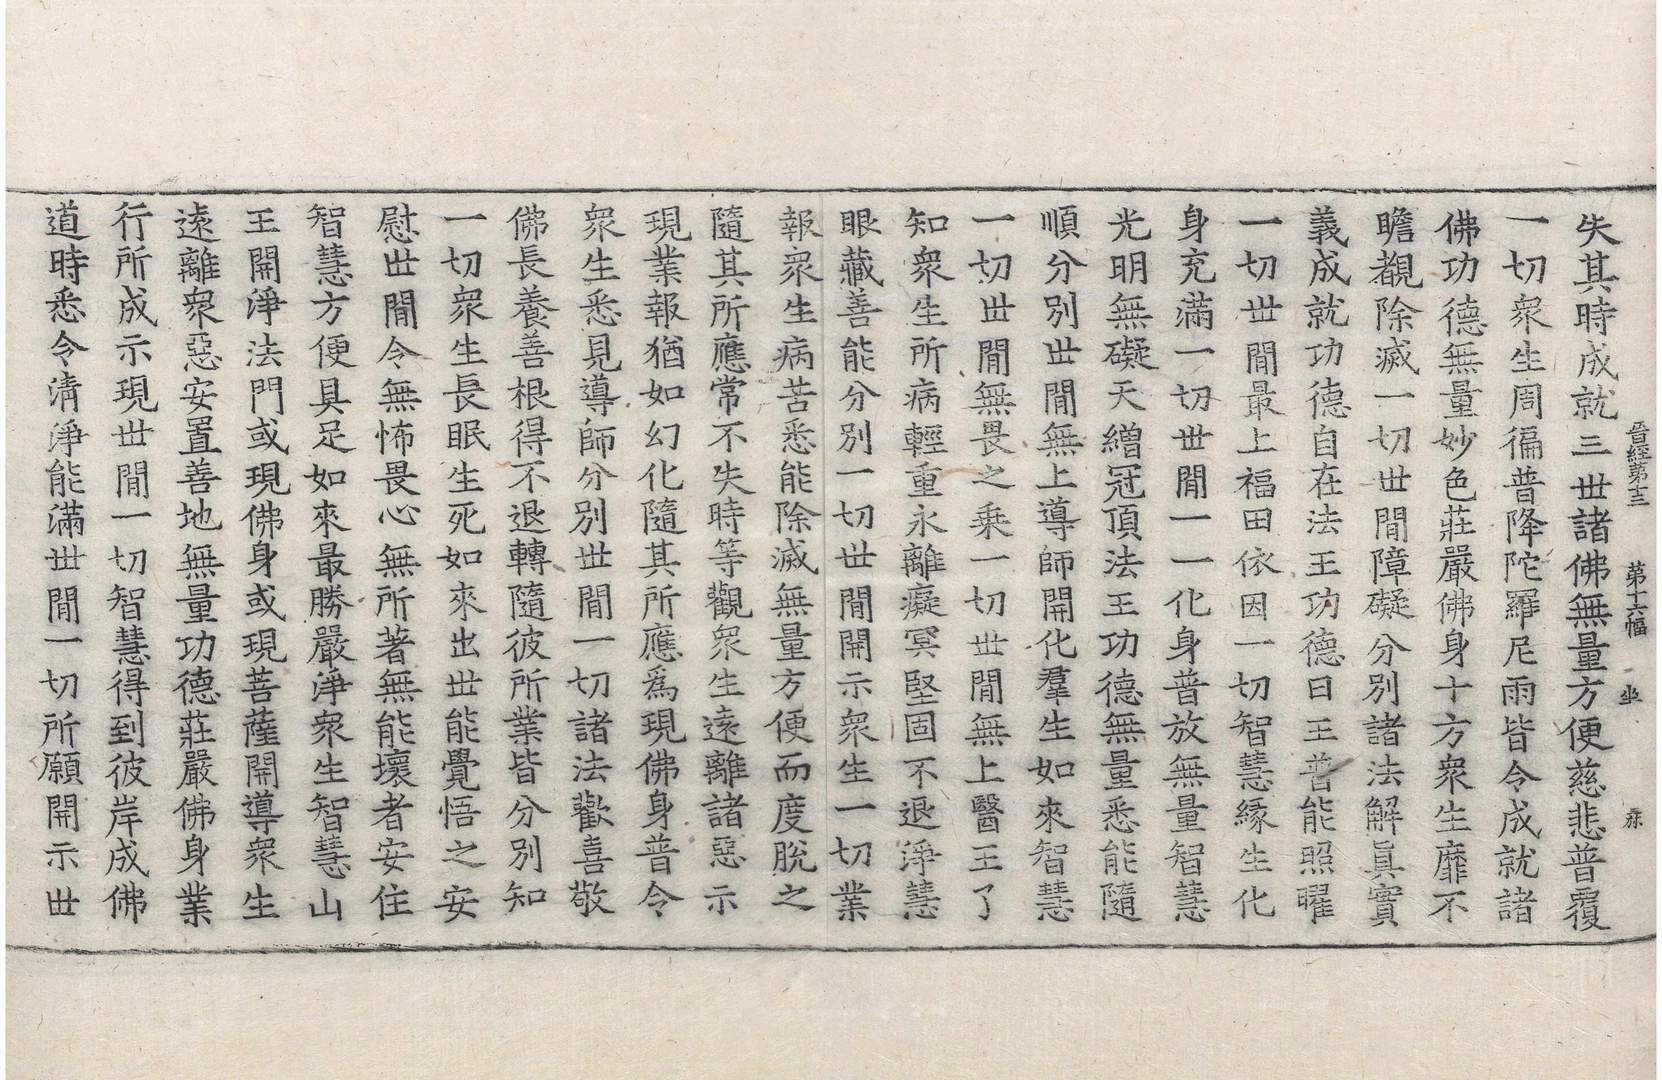 晉經第十三 第十六幅 坐 森
失其時成就三世諸佛無量方便慈悲普覆
一切衆生周徧普降陀羅尼雨皆令成就諸
佛功德無量妙色莊嚴佛身十方衆生靡不
瞻覩除滅一切世閒障礙分別諸法解眞實
義成就功德自在法王功德日王普能照曜
一切世閒最上福田依因一切智慧緣生化
身充滿一切世閒一一化身普放無量智慧
光明無礙天繒冠頂法王功德無量悉能隨
順分別世閒無上導師開化羣生如來智慧
一切世閒無畏之乗一切世閒無上醫王了
知衆生所病輕重永離癡冥堅固不退淨慧
眼藏善能分別一切世閒開示衆生一切業
報衆生病苦悉能除滅無量方便而度脫之
隨其所應常不失時等觀衆生遠離諸惡示
現業報猶如幻化隨其所應爲現佛身普令
衆生悉見導師分別世閒一切諸法歡喜敬
佛長養善根得不退轉隨彼所業皆分別知
一切衆生長眠生死如來出世能覺悟之安
慰世閒令無怖畏心無所著無能壞者安住
智慧方便具足如來最勝嚴淨衆生智慧山
王開淨法門或現佛身或現菩薩開導衆生
遠離衆惡安置善地無量功德莊嚴佛身業
行所成示現世閒一切智慧得到彼岸成佛
道時悉令清淨能滿世閒一切所願開示世